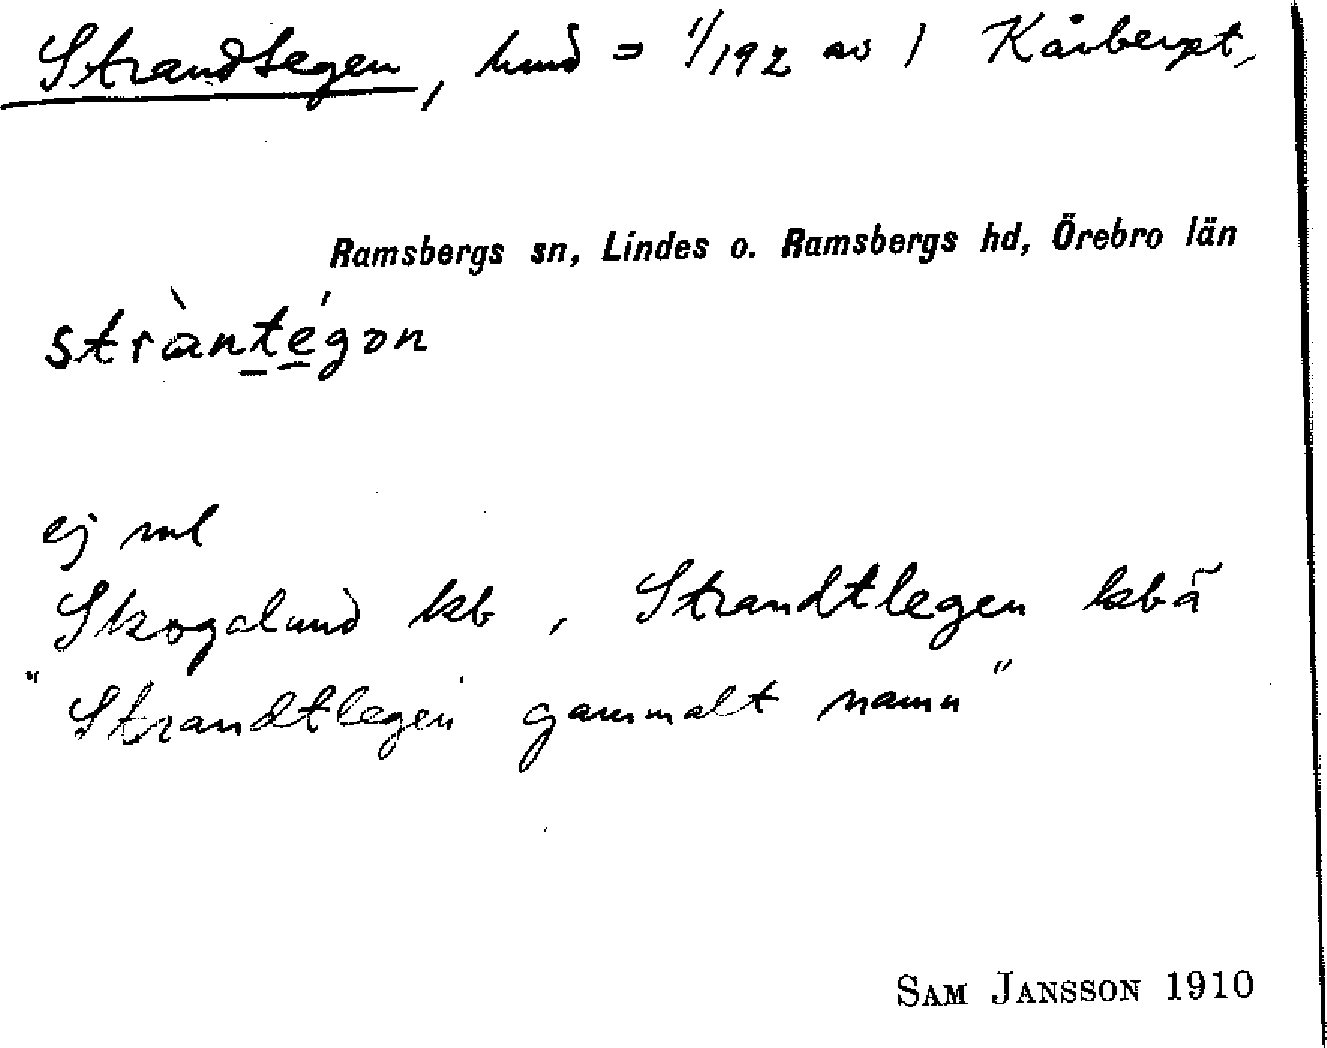 Strandtegen, hmd = 1/192 av 1 Kårberget,
Ramsbergs sn, Lindes o. Ramsbergs hd, Örebro län
stràntégɔn
ej ml
Skogslund kb, Strandtlegen kbä
"Strandtlegen gammalt namn"
SAM JANSSON 1910